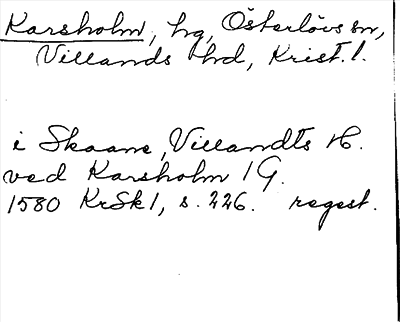 Karsholm, hg, Österlövs sn,
Villands hd, Krist. l.
i Skaane, Villandts H.
ved Karsholm 1 G.
1580 KrSk 1, s. 226. regest.